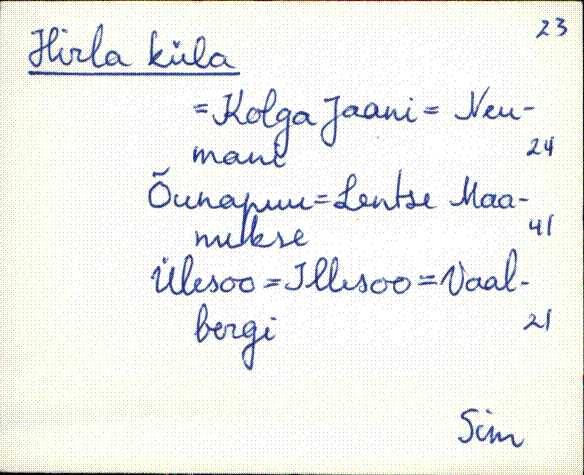 23
Hirla küla
= Kolga Jaani = Neu-
mani 24
Õunapuu = Lentse Maa-
nukse 41
Ülesoo = Illesoo = Vaal-
bergi 21
Sim